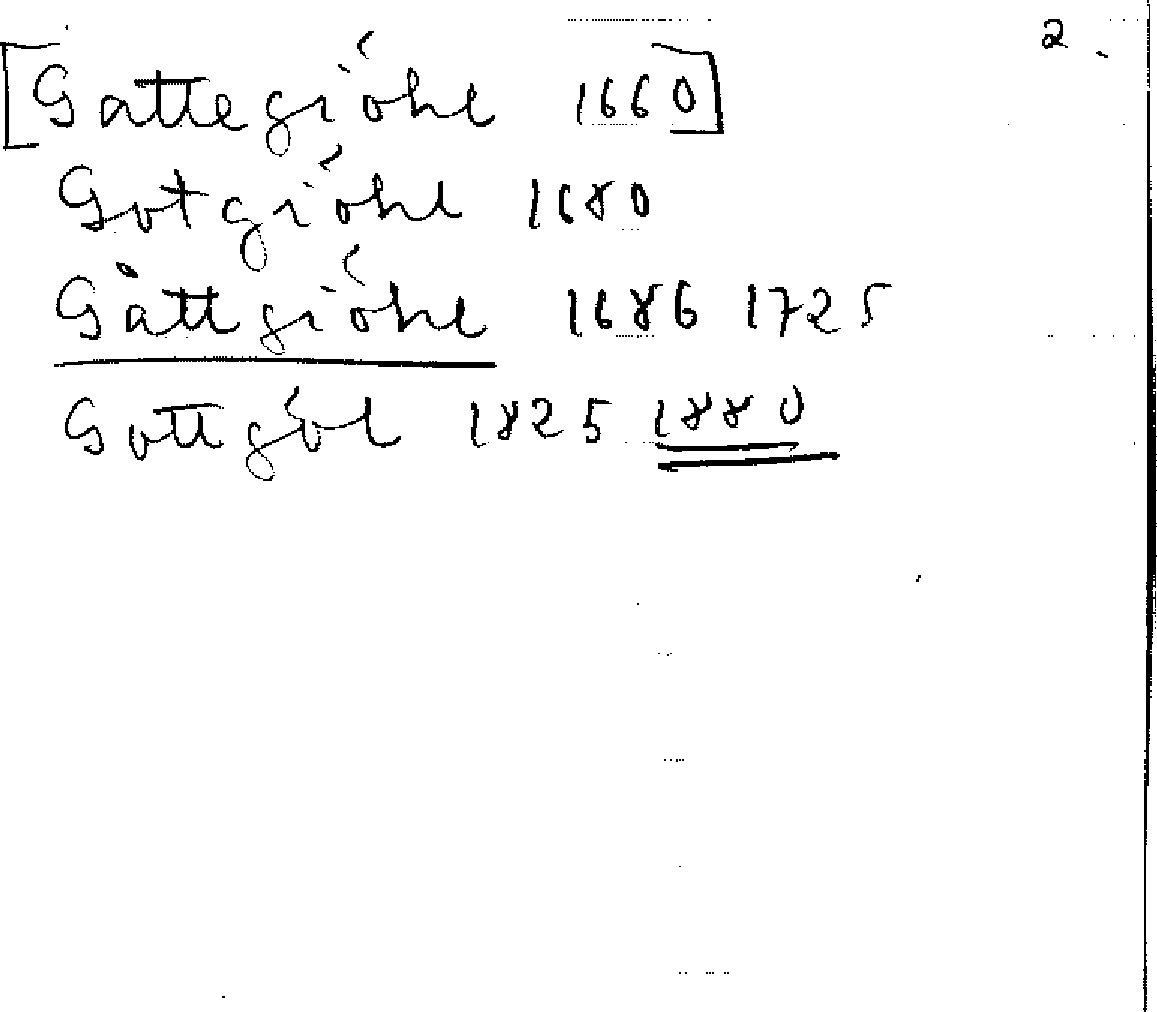 2.
[Gattegiöhl 1660]
Gotgiöhl 1680
Gåttgiöhl 1686 1725
Gottgöl 1825 1880